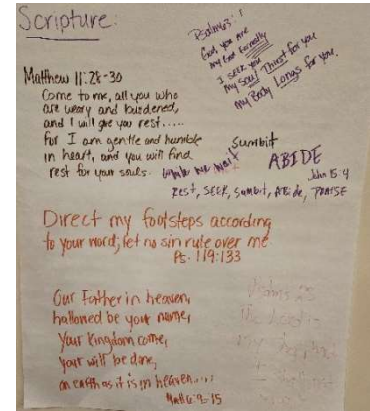 Scripture:
Psalm 63:1
God you are
my God Earnestly
I SEEK you
My Soul Thirst for you
My Body Longs for you.
Matthew 11:28-30
Come to me, all you who
are weary and burdened,
and I will give you rest.....
for I am gentle and humble
in heart, and you will find
rest for your souls.
Sumbit
ABIDE
John 15:4
REST, SEEK, Sumbit, Abide, PRAISE
Direct my footsteps according
to your word; let no sin rule over me
Ps. 119:133
Our Father in heaven,
hallowed be your name,
Your kingdom come,
your will be done,
on earth as it is in heaven....
Matt 6:9-15